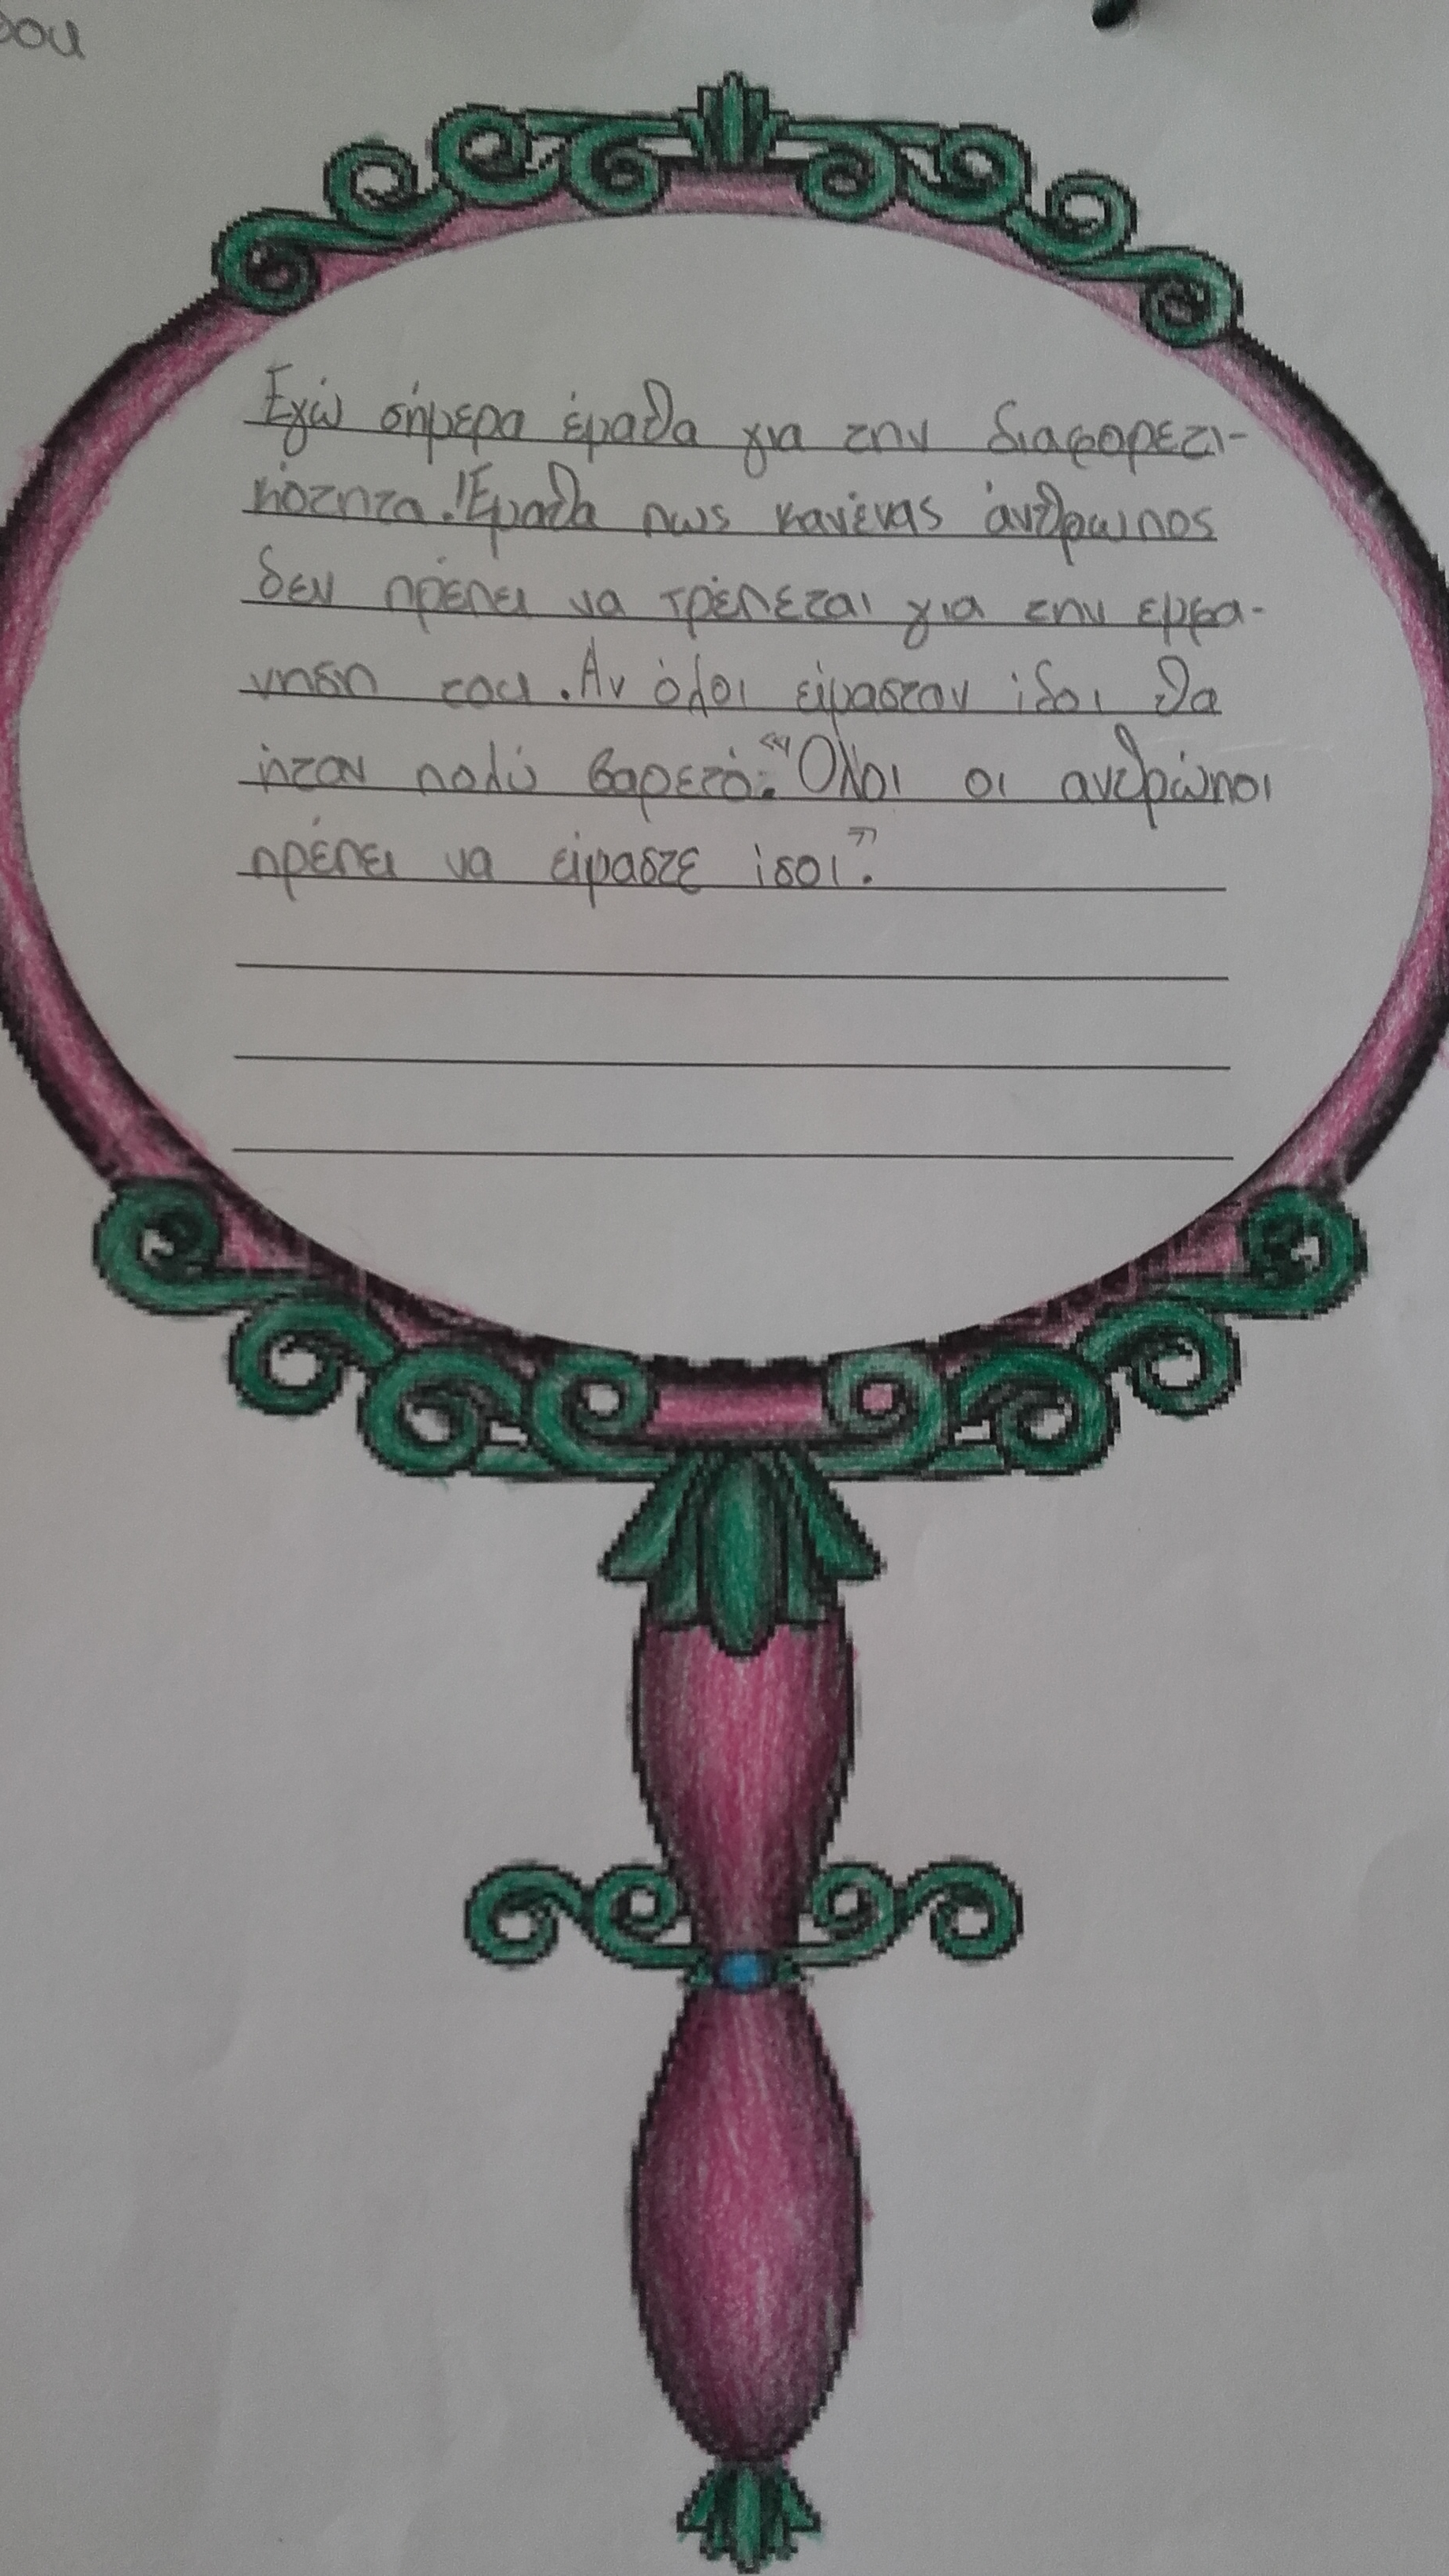 Εγώ σήμερα έμαθα για την διαφορετι-
κότητα. Έμαθα πως κανένας άνθρωπος
δεν πρέπει να τρέπεται για την εμφα-
νηση του. Αν όλοι είμασταν ίδοι θα
ήταν πολύ βαρετό. "Όλοι οι ανθρώποι
πρέπει να είμαστε ίσοι".